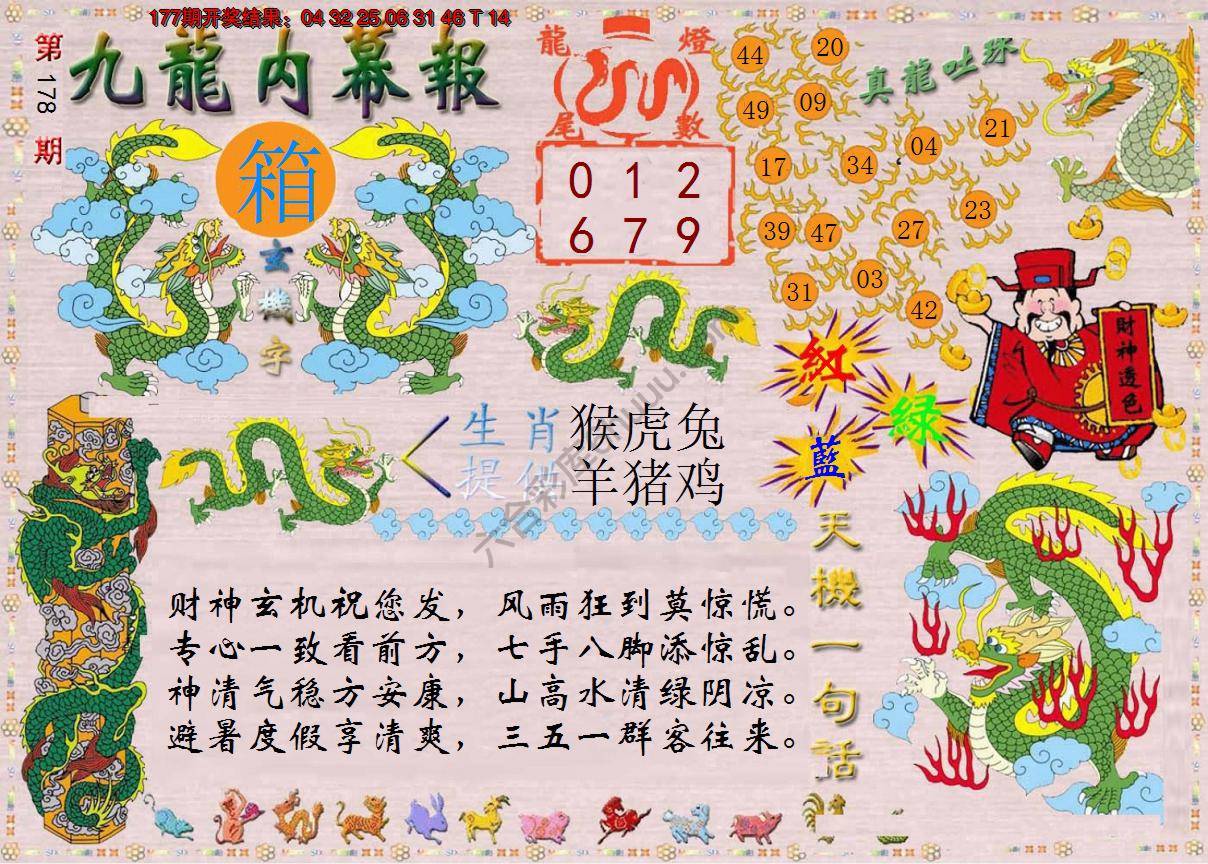 177期开奖结果：04 32 25 06 31 46 T 14
第178期
九龍内幕報
箱
玄機字
龍燈
尾數
0 1 2
6 7 9
真龍吐珠
44 20
49 09
17 34 04 21
39 47 27 23
31 03 42
財神透色
紅
綠
藍
生肖 猴虎兔
提供 羊猪鸡
六合彩库
天機一句話
财神玄机祝您发，风雨狂到莫惊慌。
专心一致看前方，七手八脚添惊乱。
神清气稳方安康，山高水清绿阴凉。
避暑度假享清爽，三五一群客往来。